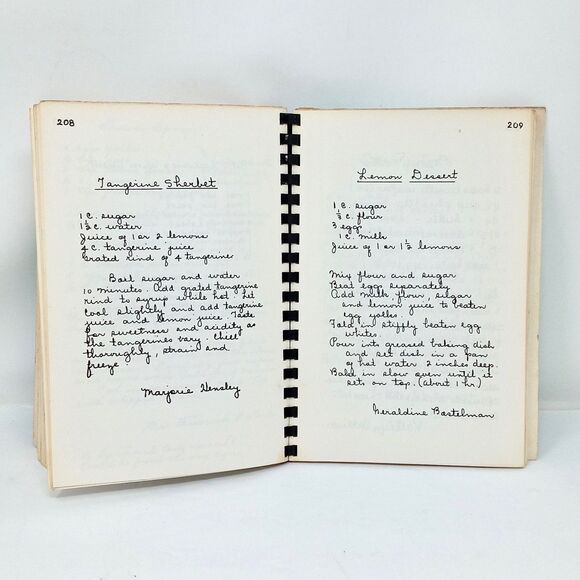 208
Tangerine Sherbet
1 c. sugar
1½ c. water
Juice of 1 or 2 lemons
4 c. tangerine juice
Grated rind of 4 tangerine
Boil sugar and water
10 minutes. Add grated tangerine
rind to syrup while hot. Let
cool slightly and add tangerine
juice and lemon juice. Taste
for sweetness and acidity as
the tangerines vary. Chill
thoroughly, strain and
freeze
Marjorie Hensley
209
Lemon Dessert
1 c. sugar
c. flour
3 egg
1 c. milk
Juice of 1 or 1½ lemons
Mix flour and sugar
Beat egg separately
Add milk, flour, sugar
and lemon juice to beaten
egg yolks.
Fold in stiffly beaten egg
whites.
Pour into greased baking dish
and set dish in a pan
of hot water 2 inches deep.
Bake in slow oven until it
sets on top. (about 1 hr.)
Geraldine Bartelman